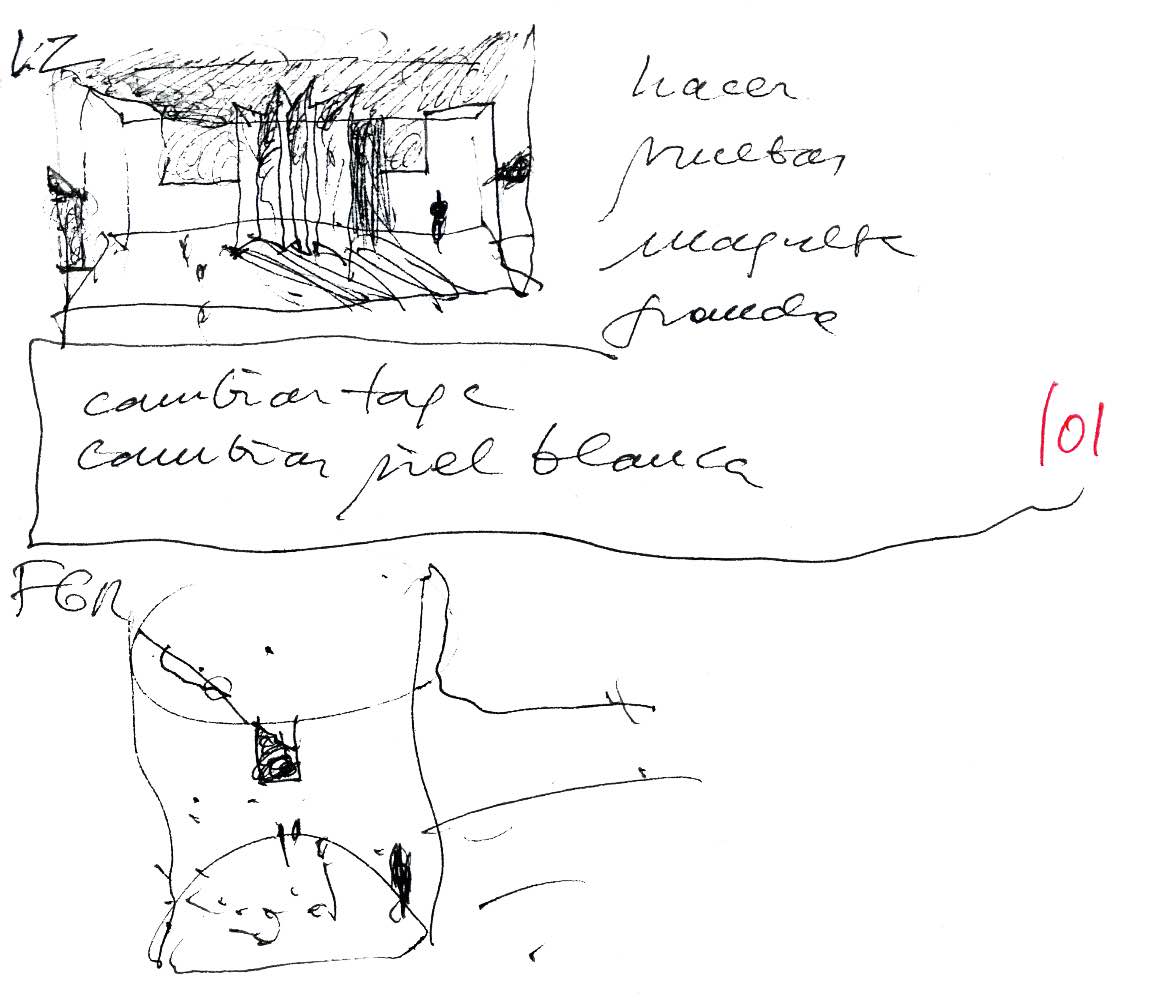 VZ
hacer
pruebas
maqueta
grande
cambiar tape
cambiar piel blanca
101
FGR